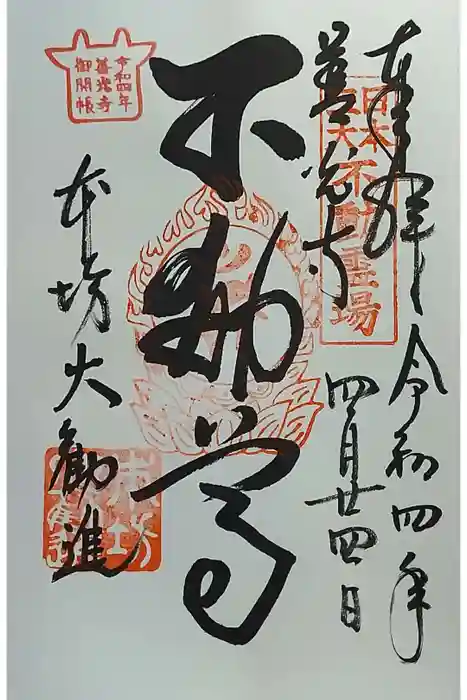 奉拝 令和四年
四月廿四日
善光寺
日本
三大不動霊場
不動尊
本坊大勧進
令和四年
善光寺
御開帳